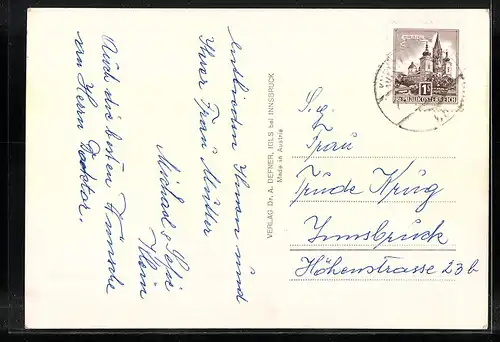 entbieten Ihnen und
Ihrer Frau Mutter
Michael
Klein
Auch die besten Wünsche
an Herrn Doktor.
VERLAG Dr. A. DEFNER, IGLS bei INNSBRUCK
Made in Austria
1S
REPUBLIK ÖSTERREICH
Frau
Trude Krug
Innsbruck
Höhenstrasse 23b